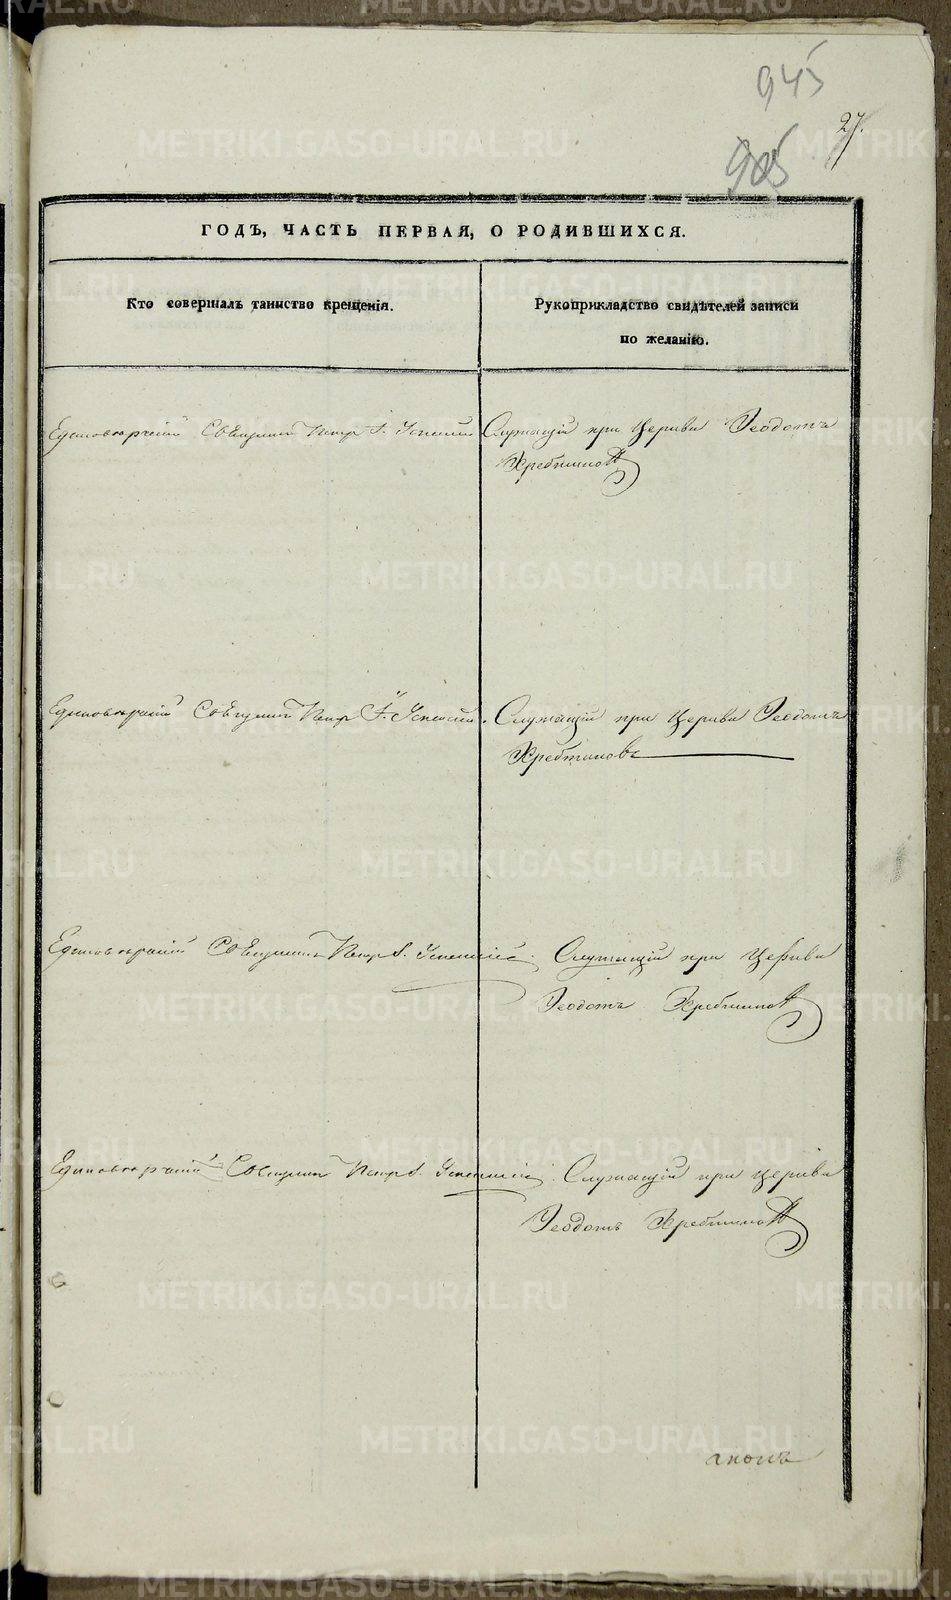 945
905
27.
ГОДЪ, ЧАСТЬ ПЕРВАЯ, О РОДИВШИХСЯ.
Кто совершалъ таинство крещенія.
Рукоприкладство свидѣтелей записи
по желанію.
Единовѣрческій Священникъ Петр І. Успенскій
Служащій при Церкви Ѳеодотъ
Хребтиковъ
Единовѣрческій Священникъ Петр І. Успенскій.
Служащій при Церкви Ѳеодотъ
Хребтиковъ
Единовѣрческій Священникъ Петръ Успенскій.
Служащій при Церкви
Ѳеодотъ Хребтиковъ
Единовѣрческій Священникъ Петръ Успенскій.
Служащій при церкви
Ѳеодотъ Хребтиковъ
METRIKI.GASO-URAL.RU